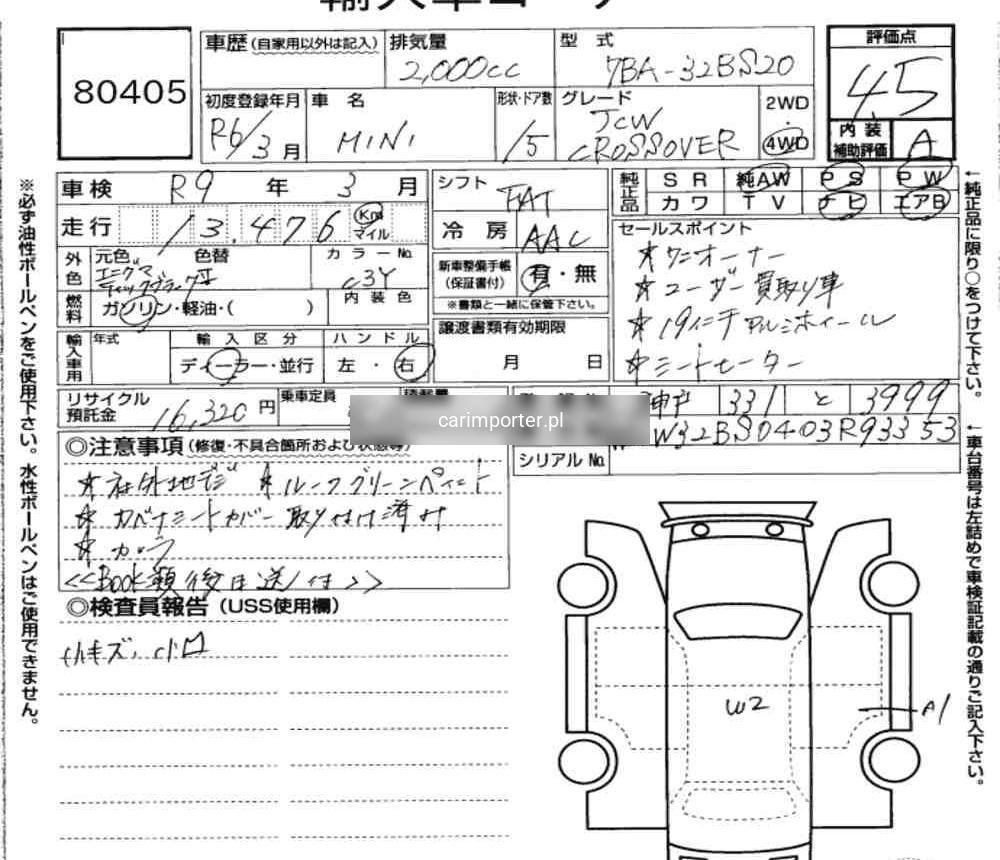 輸入車コーナー
80405
車歴 (自家用以外は記入)
排気量 2,000cc
型式 7BA-32BS20
評価点 4.5
内装補助評価 A
初度登録年月 R6/3月
車名 MINI
形状・ドア数 /5
グレード JCW CROSSOVER
2WD・4WD
車検 R9年 3月
シフト FAT
純正品 SR 純AW PS PW
カワ TV ナビ エアB
走行 13,476 Km マイル
冷房 AAC
セールスポイント
外色 元色 エニグマティックブラックⅡ 色替
カラーNo. C3Y
新車整備手帳(保証書付) 有・無
※書類と一緒に保管下さい。
☆ワンオーナー
☆ユーザー買取り車
☆19インチアルミホイール
☆シートヒーター
燃料 ガソリン・軽油・( )
内装色
譲渡書類有効期限
月 日
輸入車用 年式
輸入区分 ディーラー・並行
ハンドル 左・右
リサイクル預託金 16,320円
乗車定員
神戸 331 と 3999
carimporter.pl
W32BS0403R93353
シリアルNo.
◎注意事項 (修復・不具合箇所および状態等)
☆社外地デジ ☆ルーフグリーンペイント
☆カバナシートカバー取り付け済み
☆カメラ
<<Book類後日送付>>
◎検査員報告 (USS使用欄)
小キズ、小凹
W2
A1
※必ず油性ボールペンをご使用下さい。水性ボールペンはご使用できません。
←純正品に限り○をつけて下さい。
←車台番号は左詰めで車検証記載の通りご記入下さい。